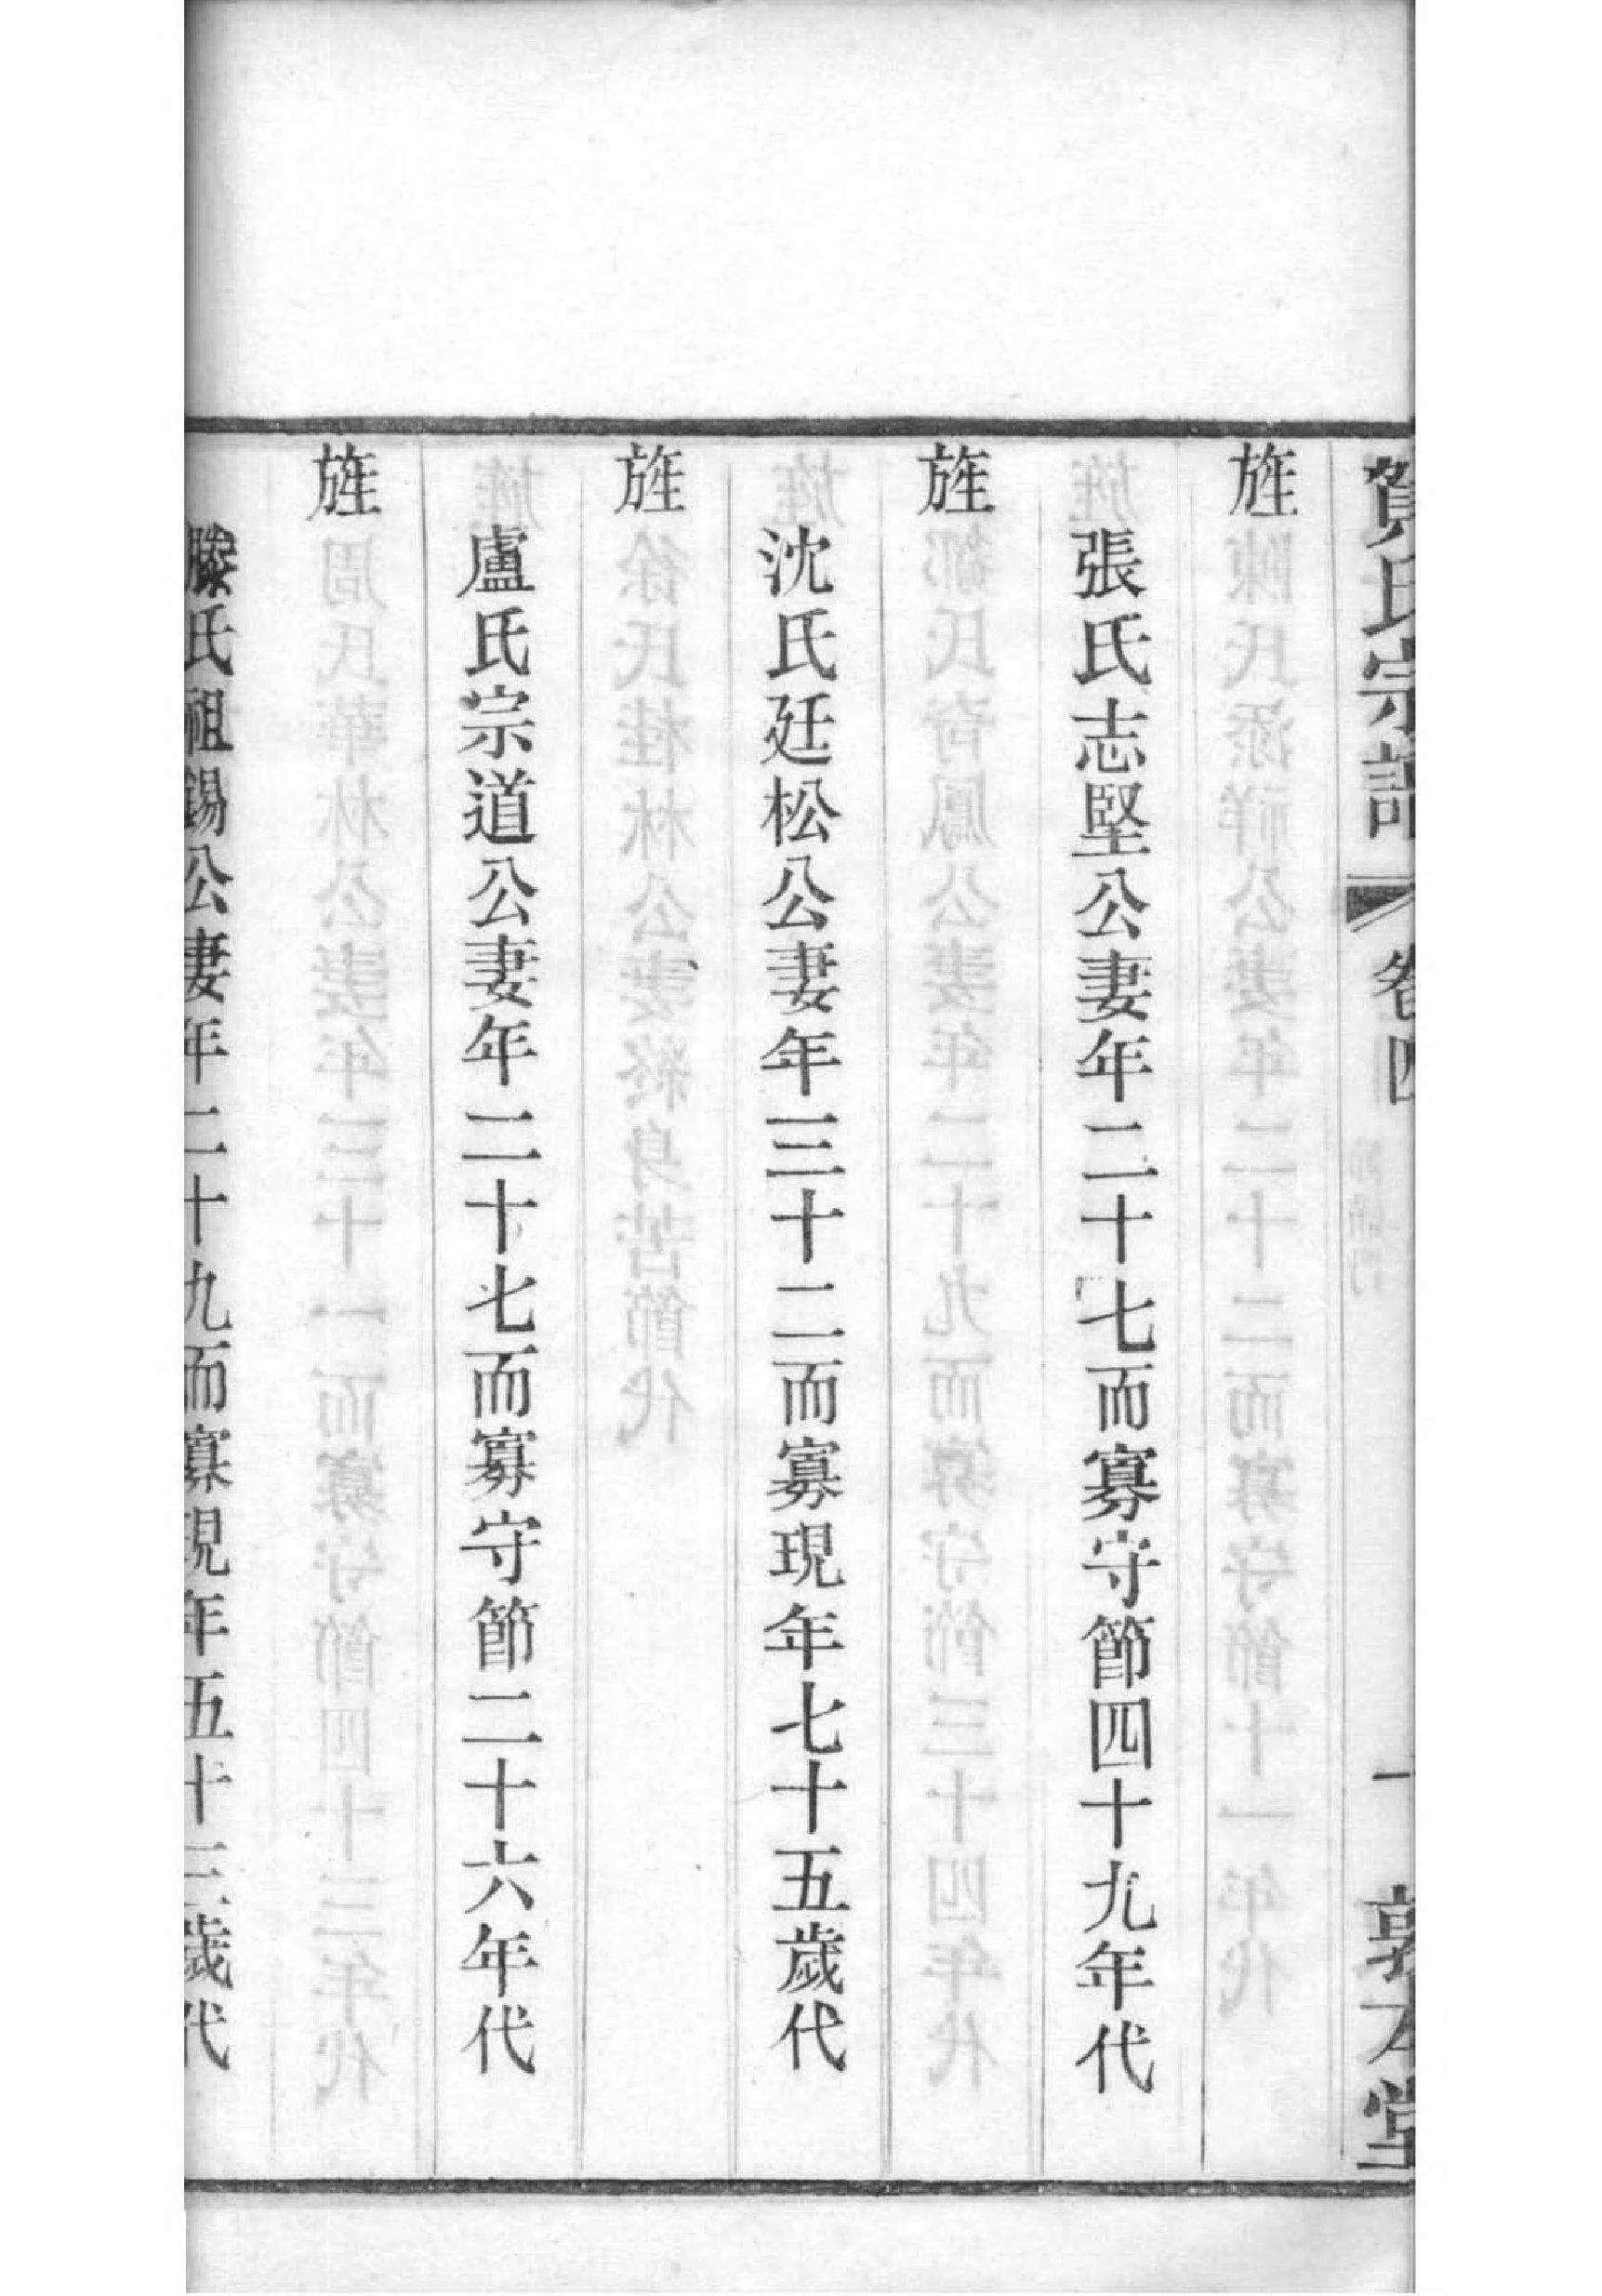 賀氏宗譜 卷四 一 敦本堂
旌
張氏志堅公妻年二十七而寡守節四十九年代
旌
沈氏廷松公妻年三十二而寡現年七十五歲代
旌
盧氏宗道公妻年二十七而寡守節二十六年代
旌
滕氏祖錫公妻年二十九而寡現年五十三歲代